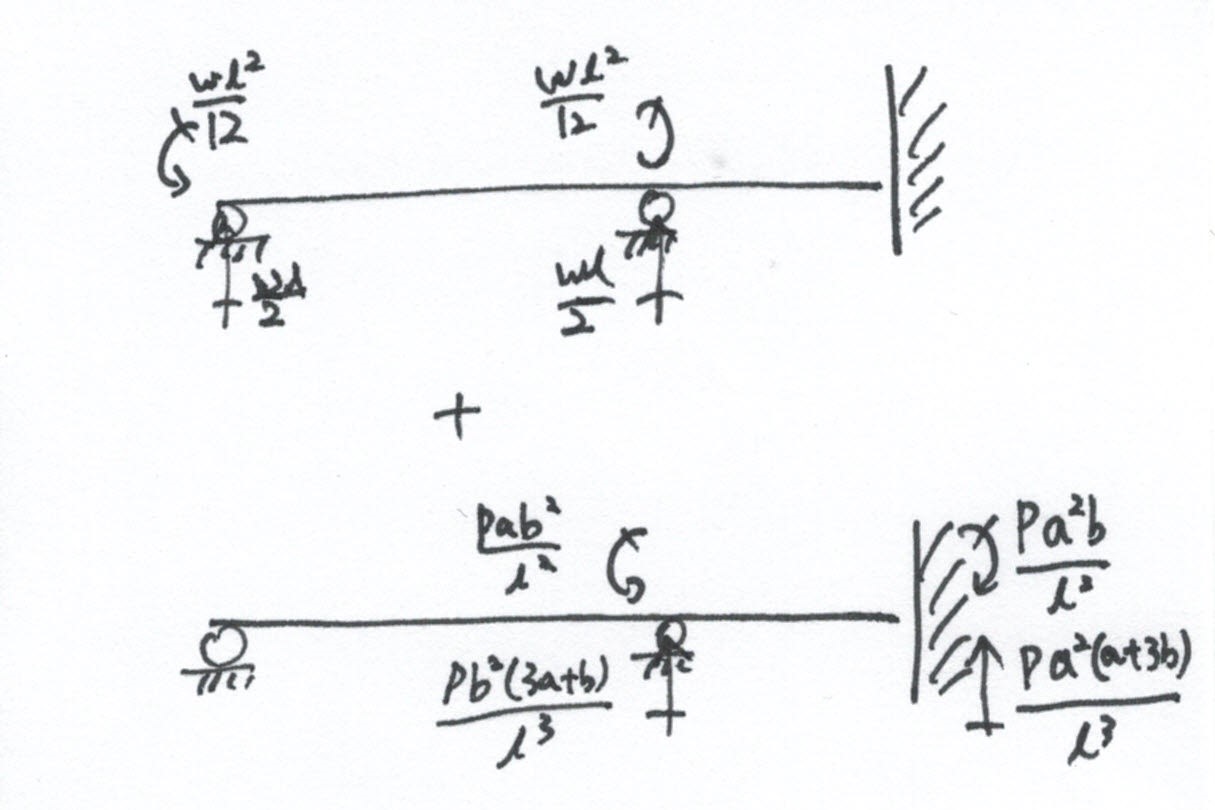 wl²/12
wl²/12
wl/2
wl/2
+
Pab²/l²
Pa²b/l²
Pb²(3a+b)/l³
Pa²(a+3b)/l³